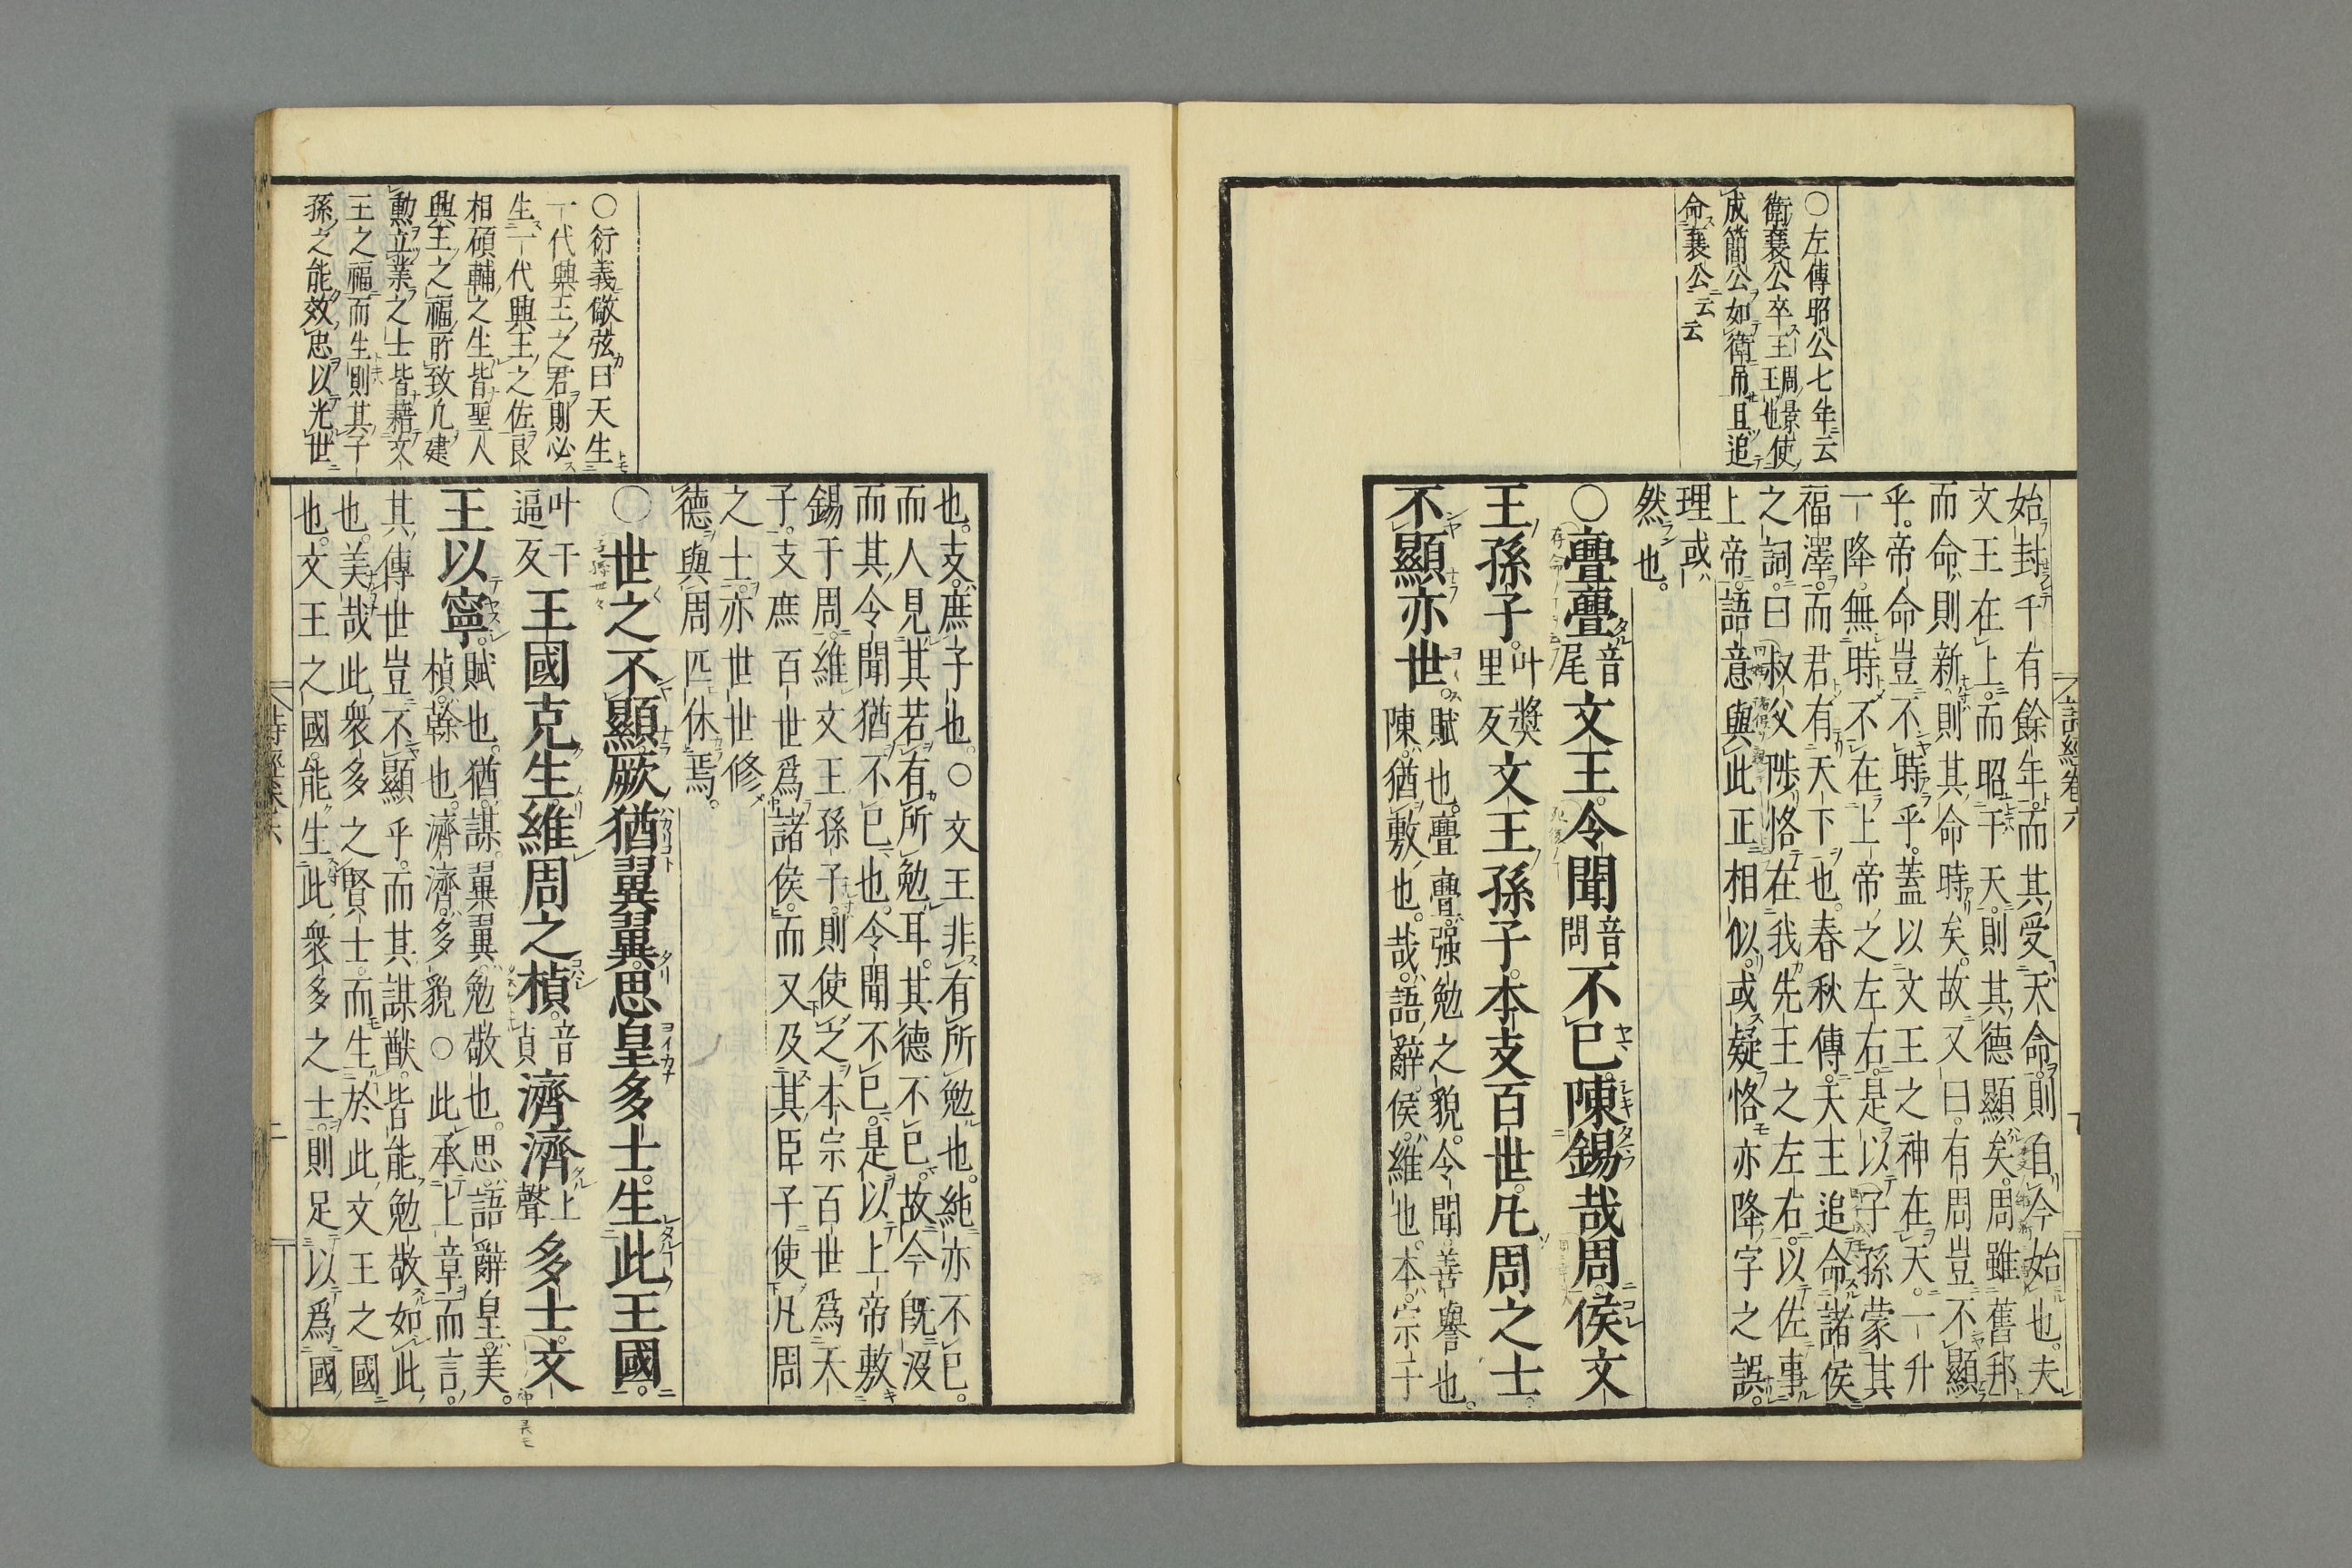 ○左傳昭公七年云
衛襄公卒王周景王也使
成簡公如衛吊且追
命襄公云云
始封千有餘年而其受天命則自今始也夫
文王在上而昭于天則其德顯矣周雖舊邦
而命則新則其命時矣故又曰有周豈不顯
乎帝命豈不時乎蓋以文王之神在天一升
一降無時不在上帝之左右是以子孫蒙其
福澤而君有天下也春秋傳天王追命諸侯
之詞曰叔父陟恪在我先王之左右以佐事
上帝語意與此正相似或疑恪亦降字之誤
理或
然也
○亹亹音尾文王令聞音問不已陳錫哉周侯文
王孫子叶奬里反文王孫子本支百世凡周之士
不顯亦世賦也亹亹强勉之貌令聞善譽也
陳猶敷也哉語辭侯維也本宗子
也支庶子也○文王非有所勉也純亦不已
而人見其若有所勉耳其德不已故今既沒
而其令聞猶不已也令聞不已是以上帝敷
錫于周維文王孫子則使之本宗百世爲天
子支庶百世爲諸侯而又及其臣子使凡周
之士亦世世修
德與周匹休焉
○世之不顯厥猶翼翼思皇多士生此王國
叶于逼反王國克生維周之楨音貞濟濟上聲多士文
王以寧賦也猶謀翼翼勉敬也思語辭皇美
楨榦也濟濟多貌○此承上章而言
其傳世豈不顯乎而其謀猷皆能勉敬如此
也美哉此衆多之賢士而生於此文王之國
也文王之國能生此衆多之士則足以爲國
○衍義儆弦曰天生
一代興王之君則必
生一代興王之佐良
相碩輔之生皆聖人
興王之福所致凡建
勲立業之士皆藉文
王之福而生則其子
孫之能效忠以光世